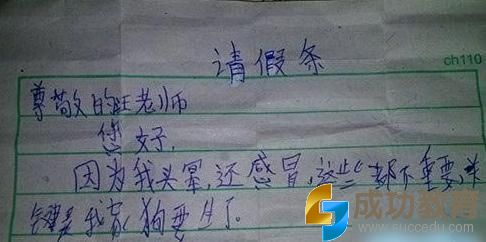 请假条
ch110
尊敬的旺老师
您好,
因为我头晕,还感冒,这些都不重要,关
键是我家狗要生了。
成功教育